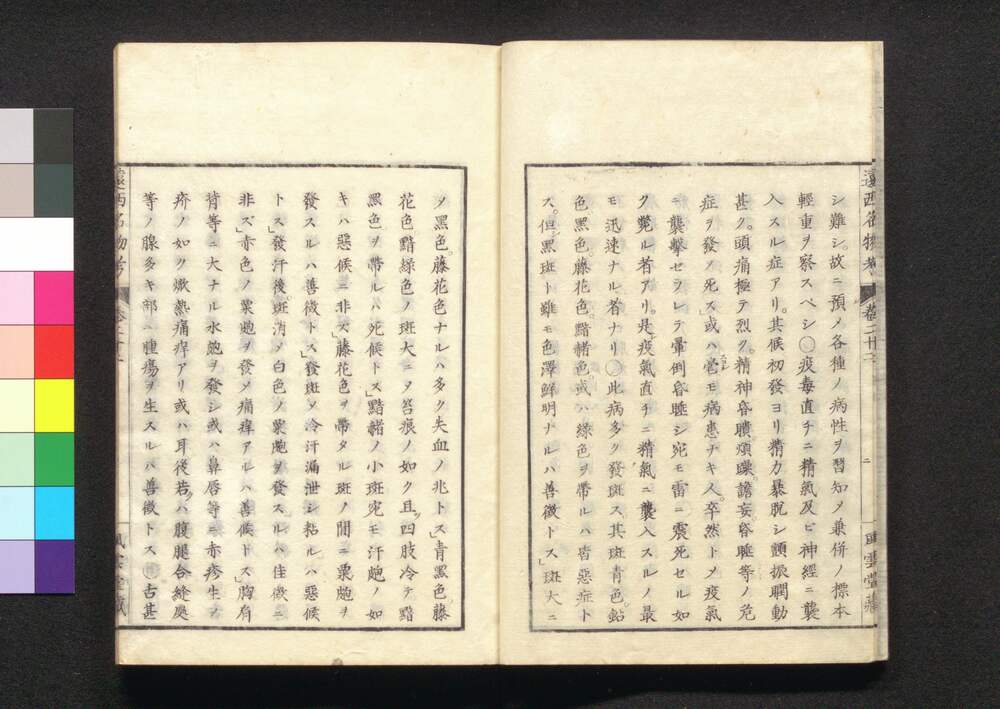 遠西名物考 卷二十二 二 風雲堂藏
シ難シ故ニ預メ各種ノ病性ヲ習知メ兼併ノ標本
輕重ヲ察スベシ〇疫毒直チニ精氣及ビ神經ニ襲
入スル症アリ其候初發ヨリ精力暴脫シ顫振瞤動
甚ク頭痛極テ烈ク精神昏聵煩躁譫妄昏睡等ノ危
症ヲ發メ死ス」或ハ嘗モ病患ナキ人卒然トメ疫氣
ニ襲撃セラレテ暈倒昏睡シ宛モ雷ニ震死セル如
ク斃ル者アリ是疫氣直チニ精氣ニ襲入スルノ最
モ迅速ナル者ナリ〇此病多ク發斑ス其斑青色鉛
色黑色藤花色黯赭色或ハ綠色ヲ帶ルハ皆惡症ト
ス但シ黑斑ト雖モ色澤鮮明ナルハ善徵トス」斑大ニ
メ黑色藤花色ナルハ多ク失血ノ兆トス」青黑色藤
花色黯綠色ノ斑大ニメ笞痕ノ如ク且ツ四肢冷テ黯
黑色ヲ帶ルハ死候トス」黯赭ノ小斑宛モ汗皰ノ如
キハ惡候ニ非ス」藤花色ヲ帶タル斑ノ間ニ粟皰ヲ
發スルハ善徵トス」發斑メ冷汗漏泄シ粘ルハ惡候
トス」發汗後斑消メ白色ノ粟皰ヲ發スルハ佳徵ニ
非ズ」赤色ノ粟皰ヲ發メ痛痒アルハ善候トス」胸肩
背等ニ大ナル水皰ヲ發シ或ハ鼻唇等ニ赤疹生メ
疥ノ如ク焮熱痛痒アリ或ハ耳後若クハ腹腿合縫處
等ノ腺多キ部ニ腫瘍ヲ生スルハ善徵トス〇舌甚
遠西名物考 卷二十二 風雲堂藏